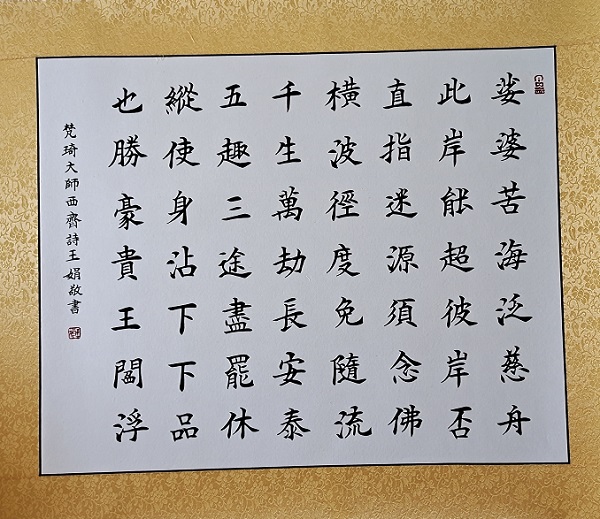 娑婆苦海泛慈舟
此岸能超彼岸否
直指迷源須念佛
橫波徑度免隨流
千生萬劫長安泰
五趣三途盡罷休
縱使身沾下下品
也勝豪貴王閻浮
梵琦大師西齋詩王娟敬書